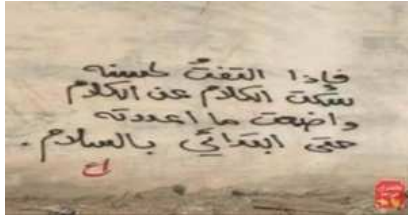 فإذا التفتُّ لحسنه
سكت الكلام عن الكلام
واضعت ما اعددته
حتى ابتدائي بالسلام.